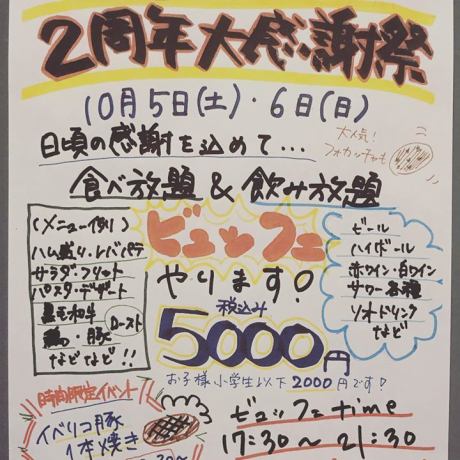 2周年大感謝祭
10月5日(土)・6日(日)
日頃の感謝を込めて...
大人気!
フォカッチャも
食べ放題 & 飲み放題
(メニュー例)
ハム盛り・レバパテ
サラダ・フリット
パスタ・デザート
黒毛和牛
鶏・豚
ロースト
などなど!!
ビュッフェ
やります!
税込み
5000円
お子様小学生以下2000円です♡
ビール
ハイボール
赤ワイン・白ワイン
サワー各種
ソフトドリンク
など
時間限定イベント
イベリコ豚
1本焼き
ビュッフェtime
17:30〜21:30